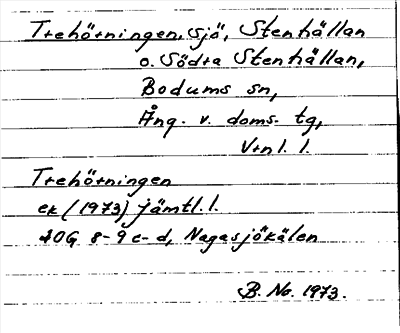 Trehörningen, sjö, Stenhällan
o. Södra Stenhällan,
Bodums sn,
Ång. v. doms. tg,
Vrnl. l.
Trehörningen
ek (1973) jämtl. l.
20G 8-9 c-d, Nagasjökälen
B. No. 1973.